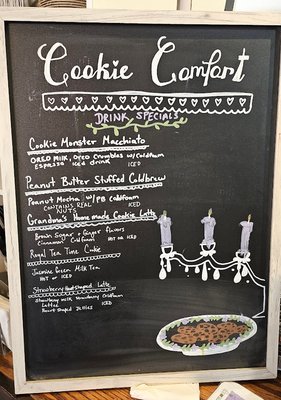 Cookie Comfort
DRINK SPECIALS
Cookie Monster Macchiato
OREO MILK, Oreo Crumbles w/ Coldfoam
ESPRESSO Iced drink ICED
Peanut Butter Stuffed Coldbrew
Peanut Mocha w/PB COLDFOAM
CONTAINS REAL ICED
NUTS
Grandma's Homemade Cookie Latte
Brown Sugar + Ginger flavors
Cinnamon Coldfoam HOT or ICED
Royal Tea Time Cookie
Jasmine Green Milk Tea
HOT or ICED
Strawberry Heart Shaped Latte
Strawberry milk Strawberry Coldfoam
Latte ICED
Heart Shaped Jellies